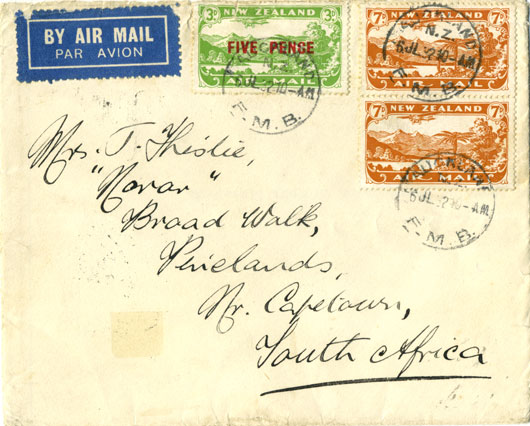 BY AIR MAIL
PAR AVION
3D NEW ZEALAND
FIVE PENCE
AIR MAIL
7D NEW ZEALAND 7D
AIR MAIL
7D NEW ZEALAND 7D
AIR MAIL
N.Z.
6 JL 32 10-AM
F.M.B.
Mrs. T. Thistle,
"Novar"
Broad Walk,
Pinelands,
Nr. Capetown,
South Africa